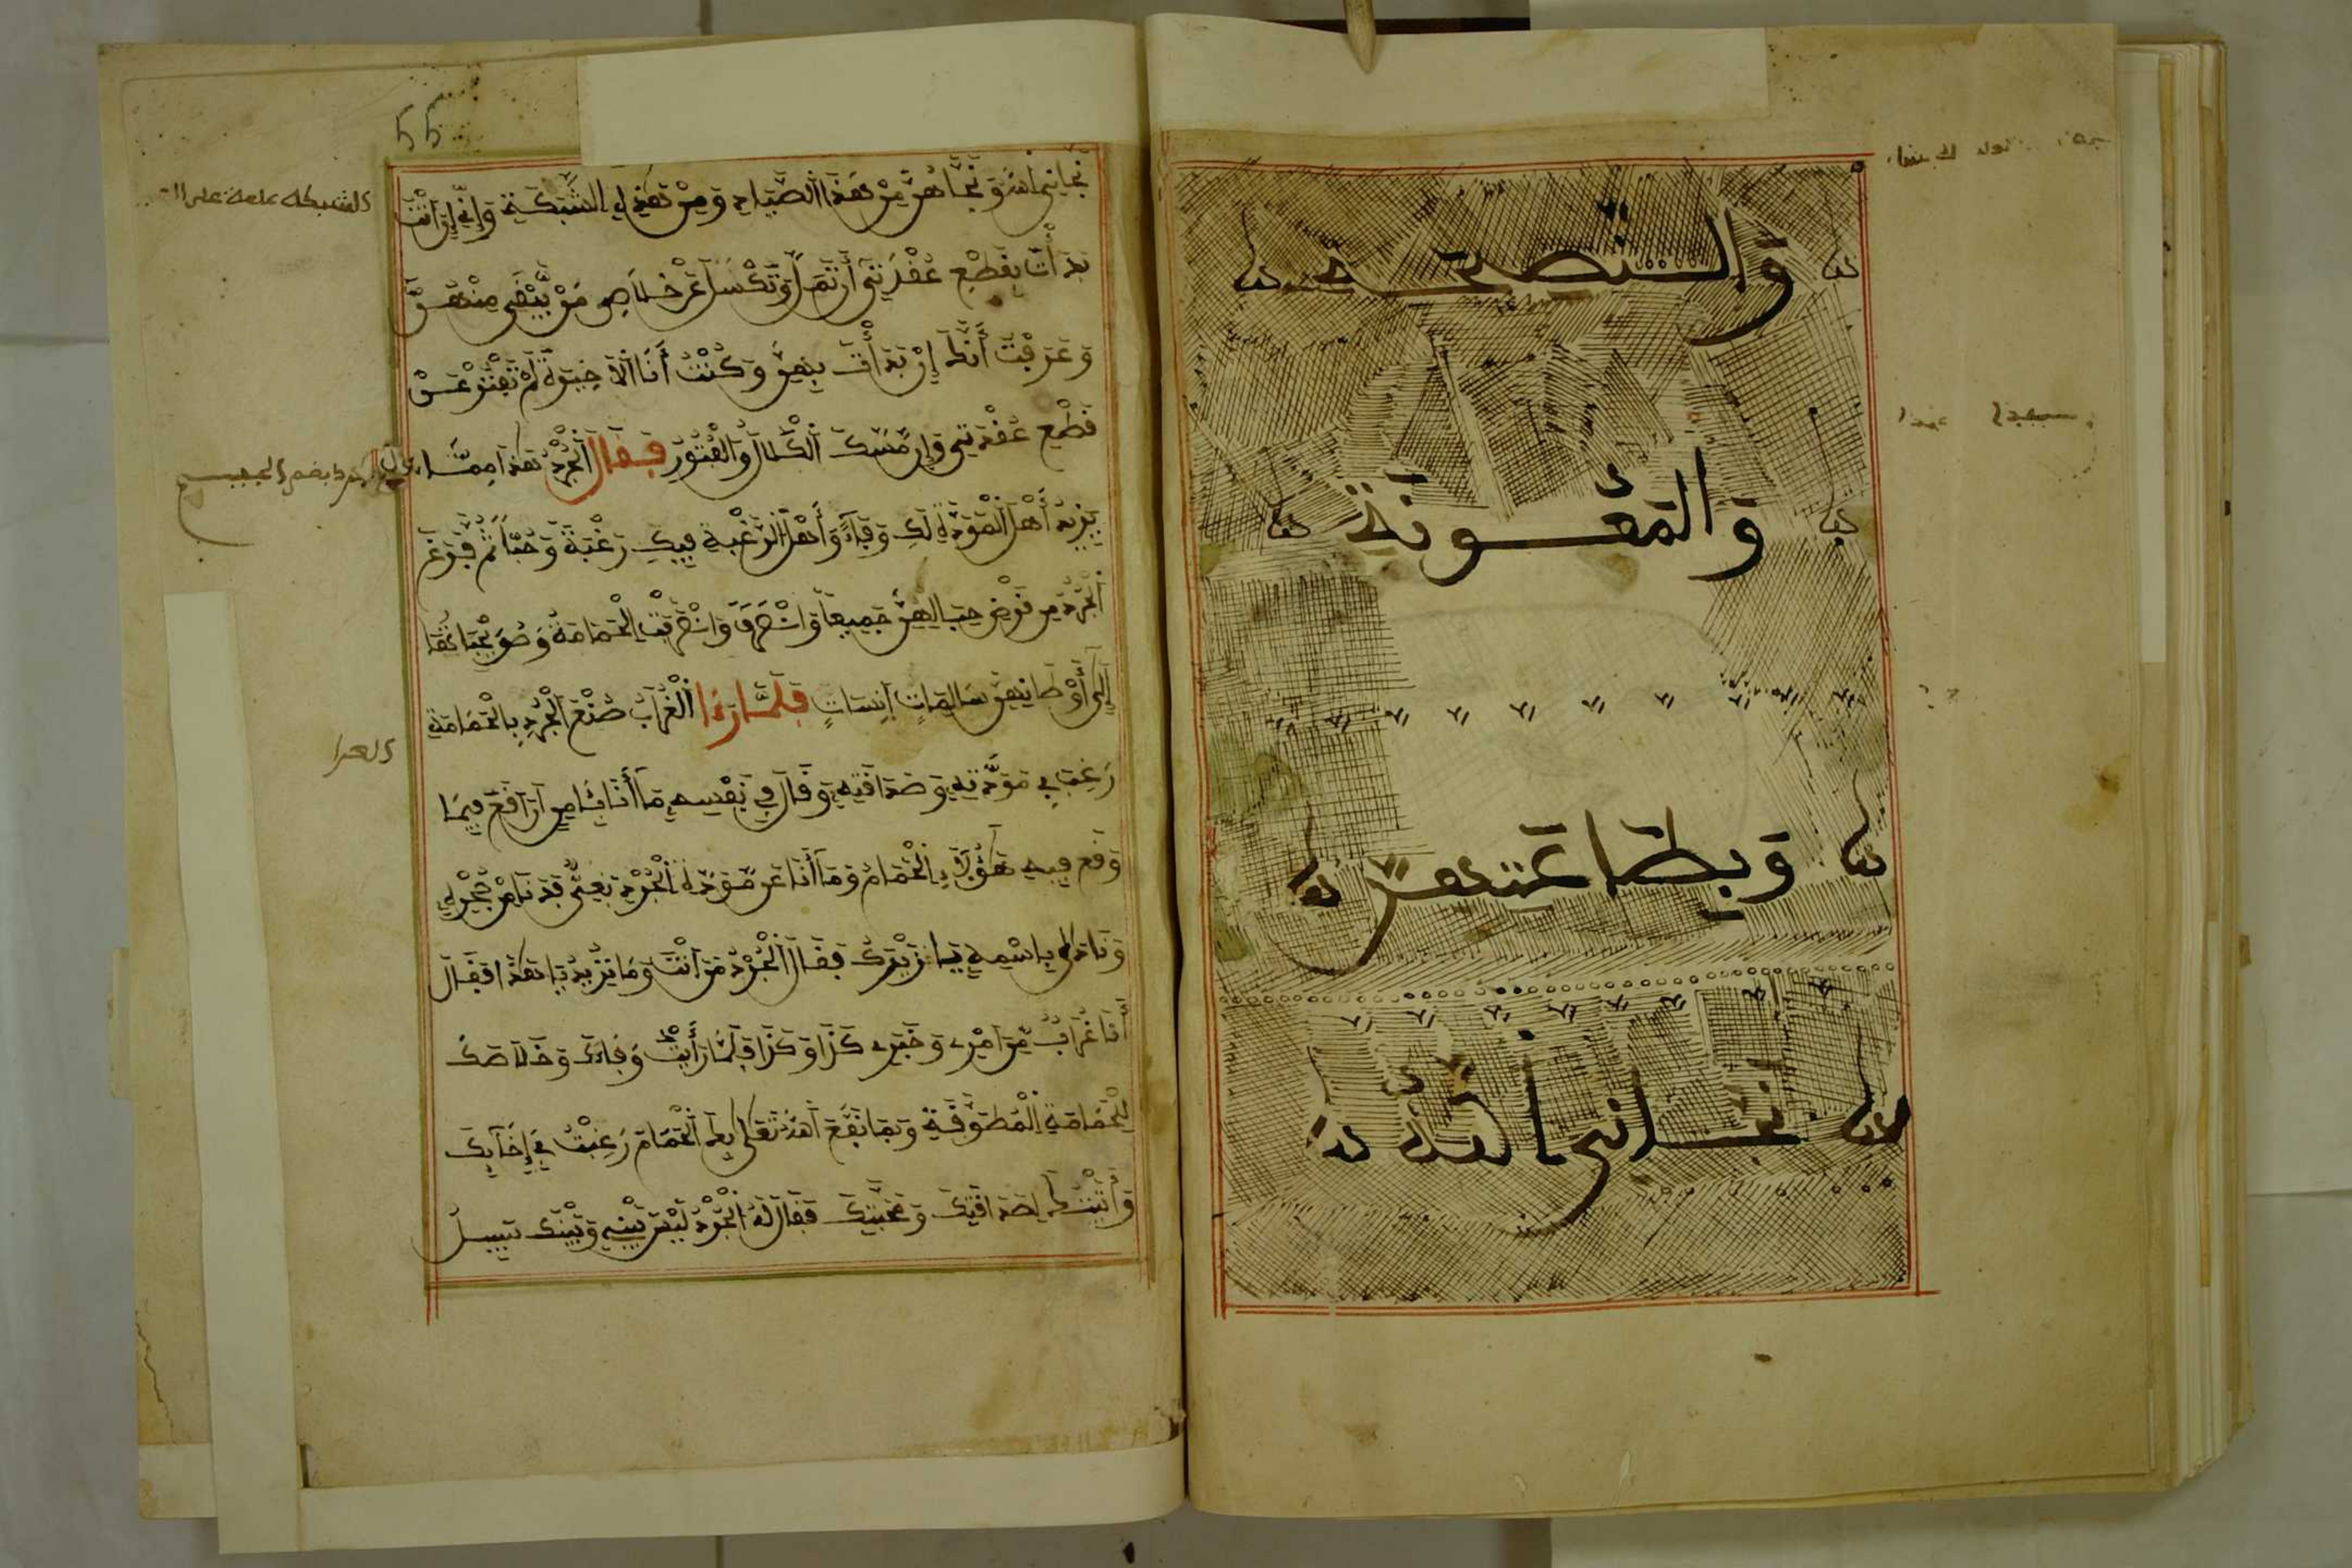 والنصيحة
والمعونة
وبطاعتهن
نجاني الله
55
نجاني الله ونجاهن من هذا الصياد ومن هذه الشبكة وإني إن أنت
بدأت بقطع عقدتي أن تمل وتكسل عن خلاص من بقي منهن
وعرفت أنك إن بدأت بهن وكنت أنا الأخيرة لم تفتر عن
قطع عقدتي وإن مسك الكلال والفتور فقال الجرذ هذا مما
يزيد أهل المودة لك وفاء وأهل الرغبة فيك رغبة وحبا ثم فرغ
الجرذ من قرض حبالهن جميعا وانصرف وانصرفت الحمامة وصويحباتها
إلى أوطانهن سالمات آنسات فلما رءا الغراب صنع الجرذ بالحمامة
رغب في مودته وصداقته وقال في نفسه ما أنا بئامن أن أقع فيما
وقع فيه الحمام وما أنا عن مودة الجرذ بغني فدنا من جحره
وناداه باسمه يا زيرك فقال الجرذ من أنت وما تريد يا هذا فقال
أنا غراب من أمري وخبري كذا وكذا فلما رأيت وفاءك وخلاصك
للحمامة المطوقة وبما نفع الله تعالى بك الحمام رغبت في إخائك
وأتيتك لصداقتك ومحبتك فقال له الجرذ ليس بيني وبينك سبيل
الشبكة
الجرذ بضم الجيم